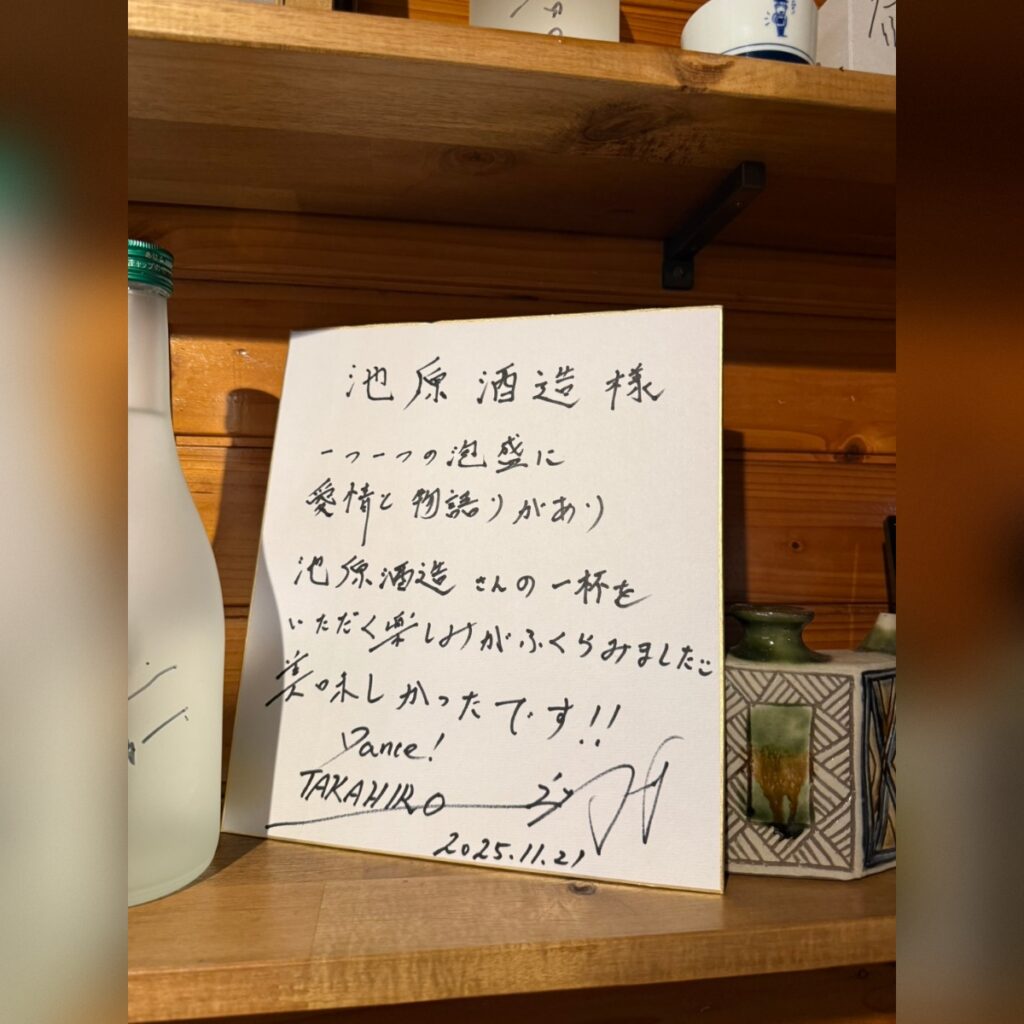 池原酒造様
一つ一つの泡盛に
愛情と物語りがあり
池原酒造さんの一杯を
いただく楽しみがふくらみました。
美味しかったです!!
Dance!
TAKAHIRO
2025.11.21